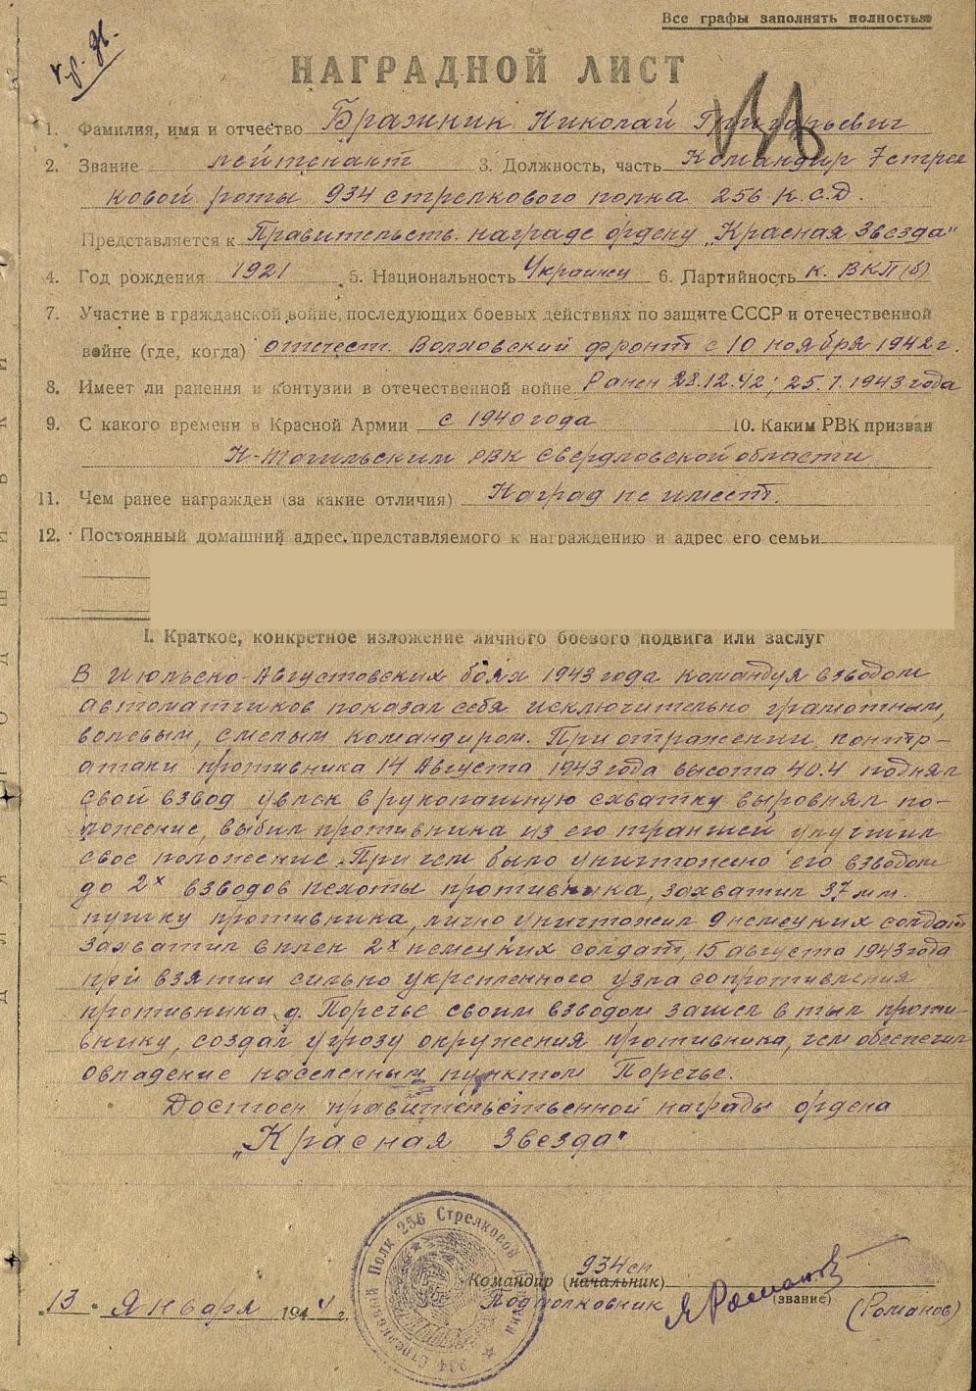 Все графы заполнять полностью
НАГРАДНОЙ ЛИСТ
1. Фамилия, имя и отчество Бражник Николай Григорьевич
2. Звание лейтенант 3. Должность, часть Командир 7 стрел
ковой роты 934 стрелкового полка 256 К.С.Д.
Представляется к Правительств. награде ордену „Красная Звезда"
4. Год рождения 1921 5. Национальность Украинец 6. Партийность к. ВКП(б)
7. Участие в гражданской войне, последующих боевых действиях по защите СССР и отечественной
войне (где, когда) отечест. Волховский фронт с 10 ноября 1942 г.
8. Имеет ли ранения и контузии в отечественной войне Ранен 28.12.42; 25.7.1943 года
9. С какого времени в Красной Армии с 1940 года 10. Каким РВК призван
Н-Тагильским РВК Свердловской области
11. Чем ранее награжден (за какие отличия) Наград не имеет.
12. Постоянный домашний адрес, представляемого к награждению и адрес его семьи
I. Краткое, конкретное изложение личного боевого подвига или заслуг
В Июльско-Августовских боях 1943 года командуя взводом
автоматчиков показал себя исключительно грамотным,
волевым, смелым командиром. При отражении контр-
атаки противника 14 Августа 1943 года высота 40.4 поднял
свой взвод увлек в рукопашную схватку выровнял по-
ложение, выбил противника из его траншей, улучшил
свое положение. При чем было уничтожено его взводом
до 2х взводов пехоты противника, захватил 37 мм.
пушку противника, лично уничтожил 9 немецких солдат
захватил в плен 2х немецких солдат, 15 августа 1943 года
при взятии сильно укрепленного узла сопротивления
противника д. Поречье своим взводом зашел в тыл проти-
внику, создал угрозу окружения противника, чем обеспечил
овладение населенным пунктом Поречье.
Достоен правительственной награды ордена
„Красная Звезда"
934 сп
Командир (начальник)
Подполковник (звание) (Романов)
„13" Января 1944 г.
934 Стрелковый Полк 256 Стрелковой Дивизии